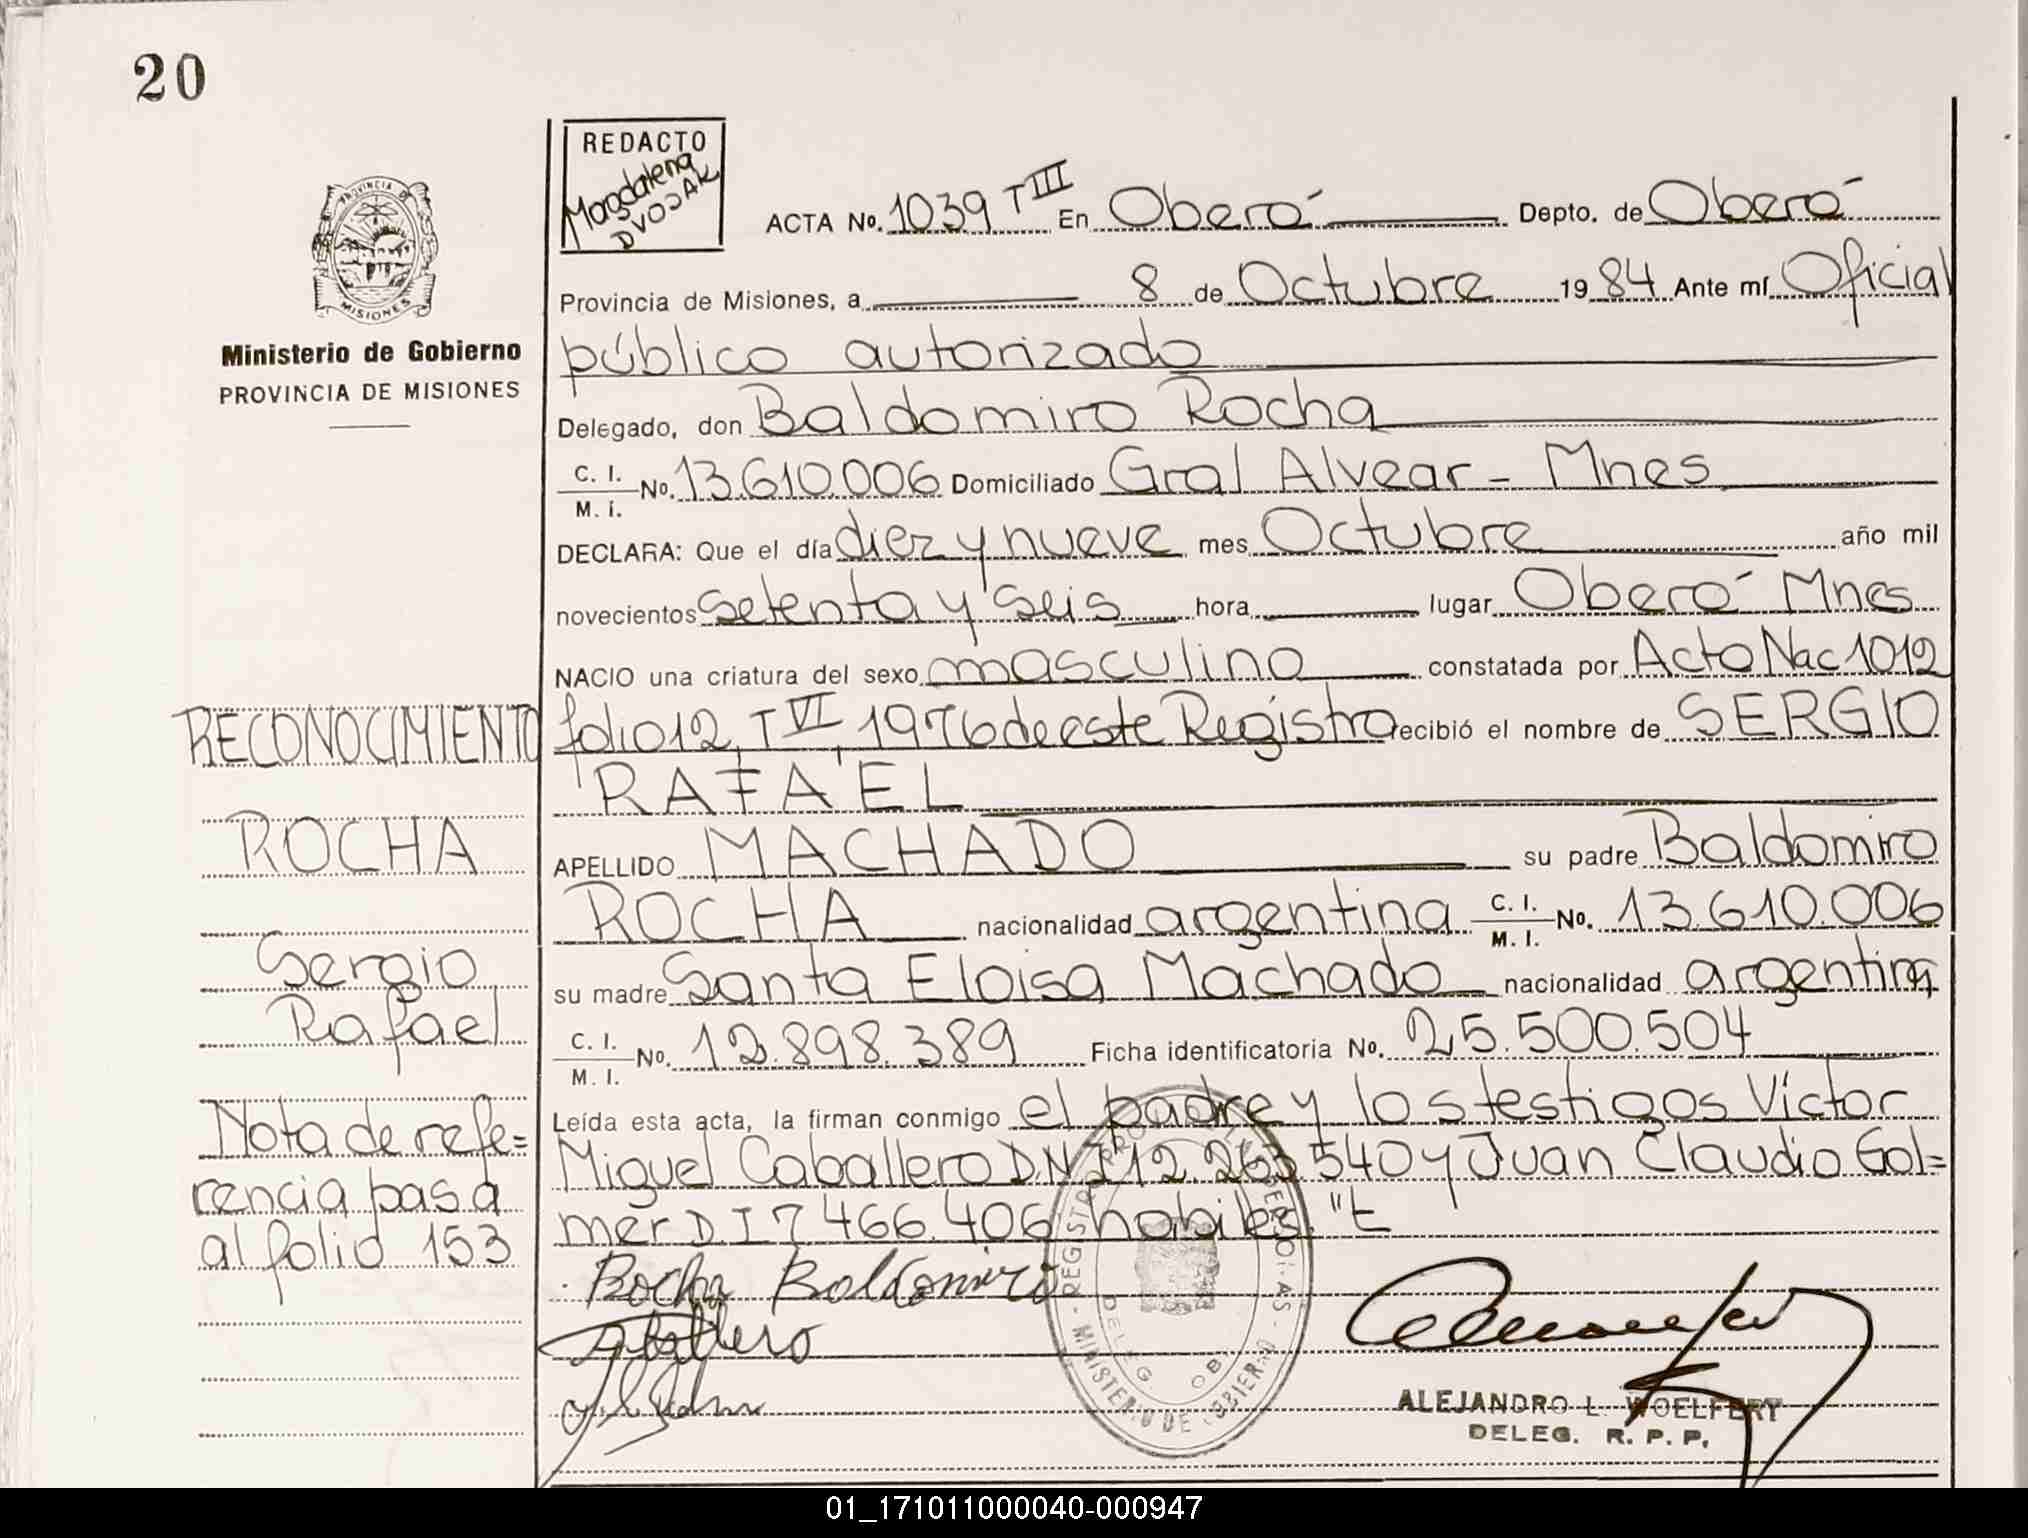 20
REDACTO
Magdalena
DVOJAK
PROVINCIA DE
MISIONES
Ministerio de Gobierno
PROVINCIA DE MISIONES
ACTA No. 1039 T III En Oberá Depto. de Oberá
Provincia de Misiones, a 8 de Octubre 1984 Ante mí Oficial
público autorizado
Delegado, don Baldomiro Rocha
C. I. / M. i. No. 13.610.006 Domiciliado Gral Alvear - Mnes
DECLARA: Que el día diez y nueve mes Octubre año mil
novecientos setenta y seis hora lugar Oberá Mnes
NACIO una criatura del sexo masculino constatada por Acta Nac 1012
folio 12, T VI, 1976 de este Registro recibió el nombre de SERGIO
RAFAEL
APELLIDO MACHADO su padre Baldomiro
ROCHA nacionalidad argentina C. I. / M. I. No. 13.610.006
su madre Santa Eloisa Machado nacionalidad argentina
C. I. / M. I. No. 12.898.389 Ficha identificatoria No. 25.500.504
Leída esta acta, la firman conmigo el padre y los testigos Víctor
Miguel Caballero D.N.I 12.263.540 y Juan Claudio Gol=
mer D.I 7466.406 habiles. "t
Rocha Baldomiro
RECONOCIMIENTO
ROCHA
Sergio
Rafael
Nota de refe=
rencia pasa
al folio 153
REGISTRO PROV. DE LAS PERSONAS
DELEG. OB.
MINISTERIO DE GOBIERNO
ALEJANDRO L. WOELFERT
DELEG. R. P. P.
01_171011000040-000947